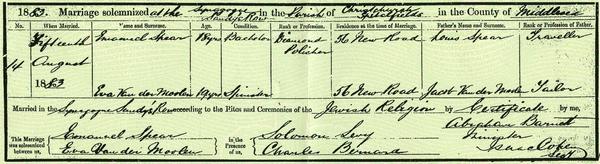 1883. Marriage solemnized at the Synagogue Sandys Row in the Parish of Christchurch Spitalfields in the County of Middlesex
No. When Married. Name and Surname. Age. Condition. Rank or Profession. Residence at the time of Marriage. Father's Name and Surname. Rank or Profession of Father.
14 Fifteenth August 1883 Emanuel Spear 18 yrs Bachelor Diamond Polisher 56 New Road Louis Spear Traveller
Eva Van der Moolen 19 yrs Spinster 56 New Road Jacob Van der Moolen Tailor
Married in the Synagogue Sandys Row according to the Rites and Ceremonies of the Jewish Religion by Certificate by me,
This Marriage was solemnized between us, Emanuel Spear Eva Van der Moolen in the Presence of us, Solomon Levy Charles Bernard Abraham Barnett Minister
Isaac Cohen Secty